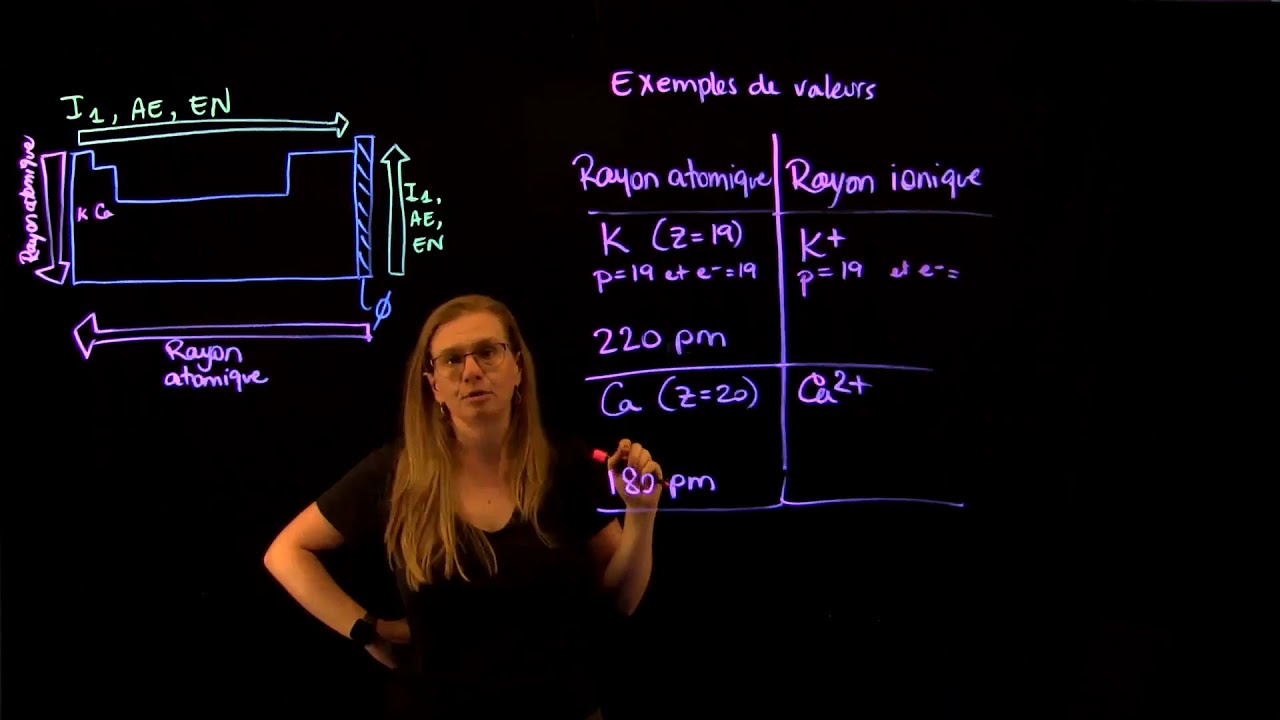 I1, AE, EN
Rayon atomique
K Ca
I1,
AE,
EN
φ
Rayon
atomique
Exemples de valeurs
Rayon atomique Rayon ionique
K (Z=19) K+
p=19 et e-=19 p=19 et e-=
220 pm
Ca (Z=20) Ca2+
180 pm